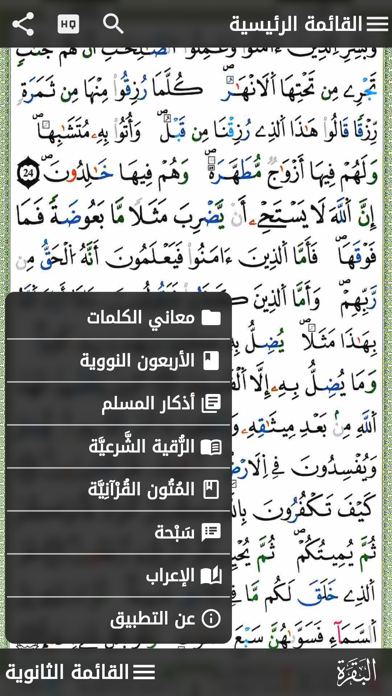 القائمة الرئيسية HQ
وَبَشِّرِ اِ۬لذِينَ ءَامَنُواْ وَعَمِلُواْ اُ۬لصَّٰلِحَٰتِ أَنَّ لَهُمْ جَنَّٰتٖ
تَجْرِے مِن تَحْتِهَا اَ۬لَانْهَٰرُۖ كُلَّمَا رُزِقُواْ مِنْهَا مِن ثَمَرَةٖ
رِّزْقاٗ قَالُواْ هَٰذَا اَ۬لذِے رُزِقْنَا مِن قَبْلُۖ وَأُتُواْ بِهِۦ مُتَشَٰبِهاٗۖ
وَلَهُمْ فِيهَا أَزْوَٰجٞ مُّطَهَّرَةٞۖ وَهُمْ فِيهَا خَٰلِدُونَۖ 24
إِنَّ اَ۬للَّهَ لَا يَسْتَحْيِۦٓ أَنْ يَّضْرِبَ مَثَلاٗ مَّا بَعُوضَةٗ فَمَا
فَوْقَهَاۖ فَأَمَّا اَ۬لذِينَ ءَامَنُواْ فَيَعْلَمُونَ أَنَّهُ اُ۬لْحَقُّ مِن
رَّبِّهِمْۖ وَأَمَّا اَ۬لذِينَ
بِهَٰذَا مَثَلاٗۖ يُضِلُّ
وَمَا يُضِلُّ بِهِۦٓ إِلَّا
اَ۬للَّهِ مِنۢ بَعْدِ مِيثَٰقِهِۦ
وَيُفْسِدُونَ فِے اِ۬لَارْضِ
كَيْفَ تَكْفُرُونَ
ثُمَّ يُمِيتُكُمْ ثُمَّ
اَ۬لذِے خَلَقَ لَكُم مَّا
اَ۬لسَّمَآءِ فَسَوَّىٰهُنَّ سَبْعَ
معاني الكلمات
الأربعون النووية
أذكار المسلم
الرُّقية الشَّرعيَّة
المُتُون القُرْآنِيَّة
سَبْحة
الإعراب
عن التطبيق
القائمة الثانوية
البَقَرَة